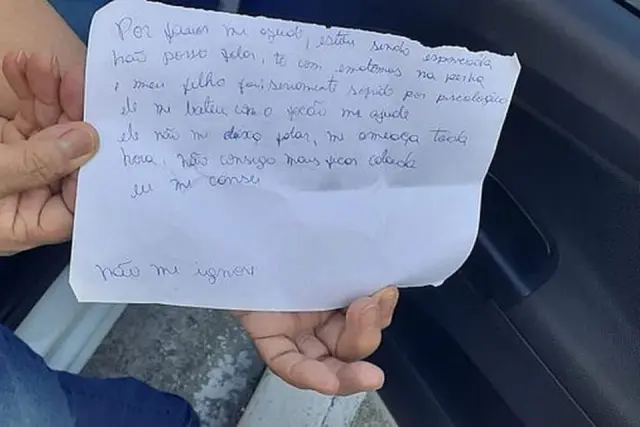 Por favor me ajude, estou sendo espancada
não posso falar, to com ematomas na perna
e meu filho por psicológico
ele me bateu com o facão me ajude
ele não me deixa falar, me ameaça toda
hora, não consigo mais ficar calada
eu me cansei
não me ignore